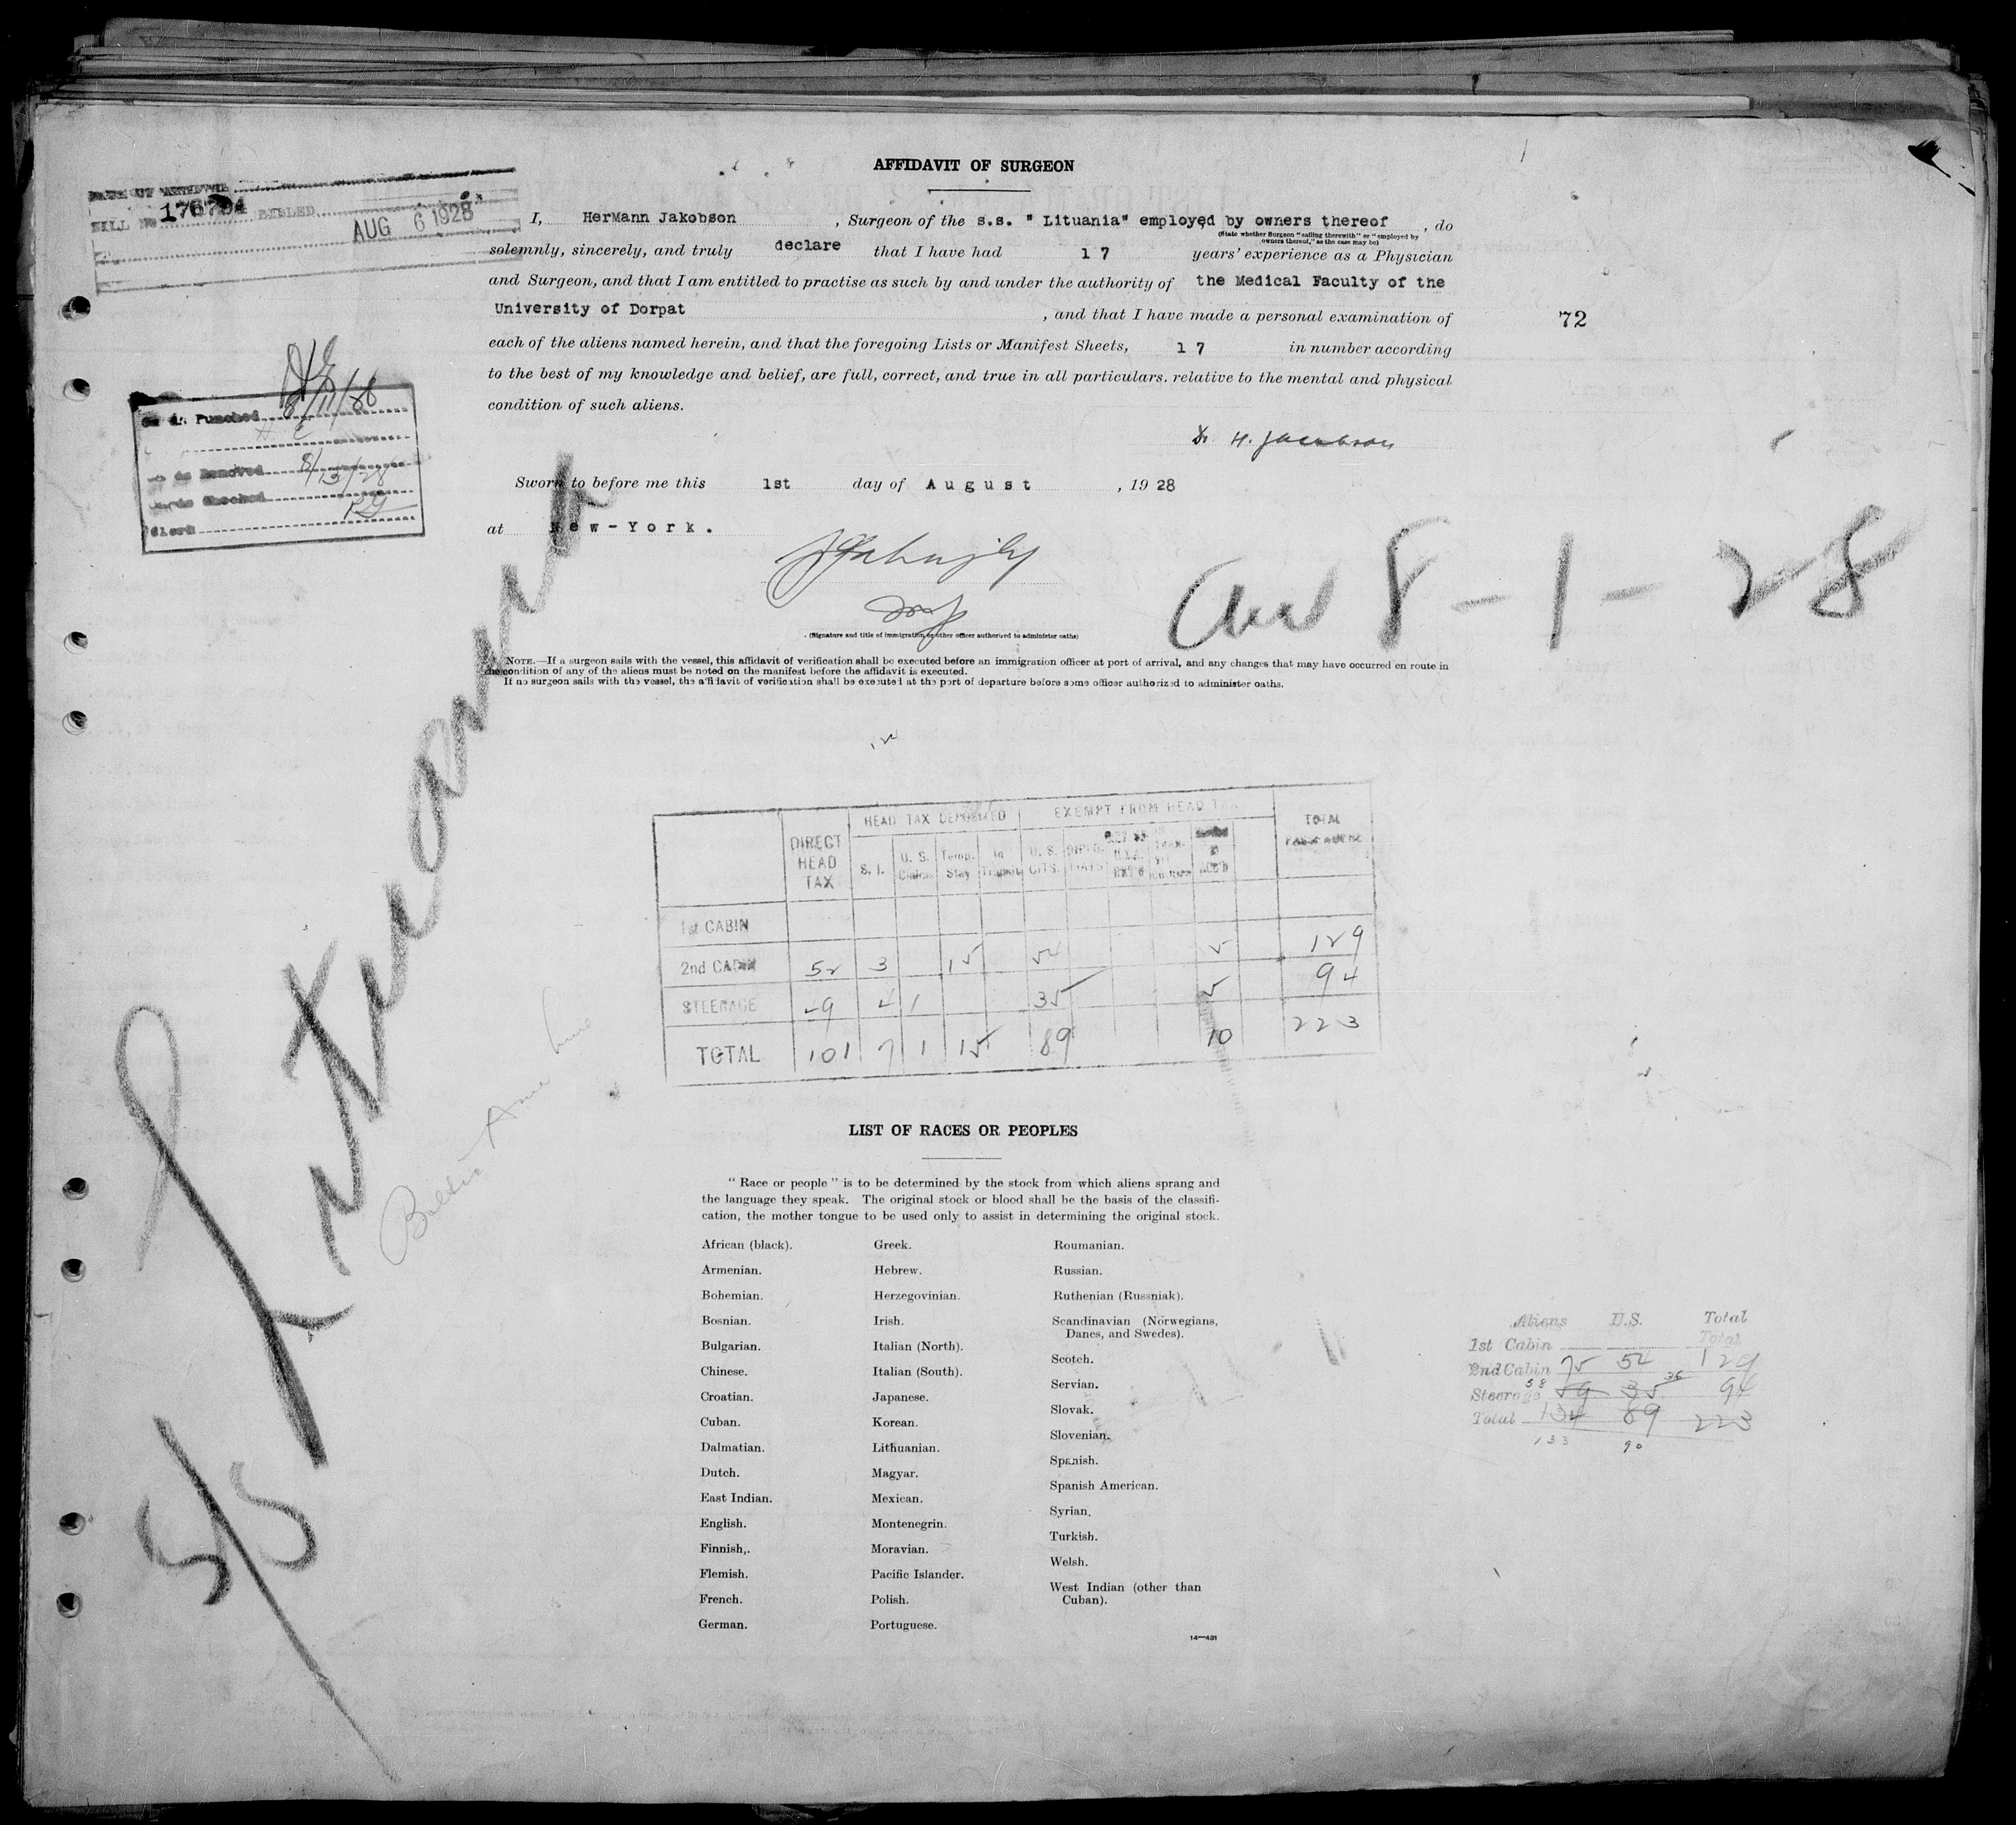 AFFIDAVIT OF SURGEON
DATE OF
BILL No 176794 BILLED AUG 6 1928
I, HerMann Jakobson , Surgeon of the s.s. " Lituania" employed by owners thereof , do
(State whether Surgeon "sailing therewith" or "employed by
owners thereof," as the case may be)
solemnly, sincerely, and truly declare that I have had 1 7 years' experience as a Physician
and Surgeon, and that I am entitled to practise as such by and under the authority of the Medical Faculty of the
University of Dorpat , and that I have made a personal examination of
72
each of the aliens named herein, and that the foregoing Lists or Manifest Sheets, 1 7 in number according
to the best of my knowledge and belief, are full, correct, and true in all particulars. relative to the mental and physical
condition of such aliens.
Punched 8/11/28
Removed 8/13/28
Checked
Clerk
Dr H. Jacobson
Sworn to before me this 1st day of August , 19 28
at New-York.
8-1-28
(Signature and title of immigration or other officer authorized to administer oaths)
NOTE.—If a surgeon sails with the vessel, this affidavit of verification shall be executed before an immigration officer at port of arrival, and any changes that may have occurred en route in
the condition of any of the aliens must be noted on the manifest before the affidavit is executed.
If no surgeon sails with the vessel, the affidavit of verification shall be executed at the port of departure before some officer authorized to administer oaths.
S/S Lituania
Baltic Ame Line
DIRECT HEAD TAX
HEAD TAX DEPOSITED
EXEMPT FROM HEAD TAX
TOTAL
S. I. U. S. Temp. Stay In Transit U. S. CITS.
1st CABIN
2nd CABIN 52 3 15 54 5 129
STEERAGE 49 4 1 35 5 94
TOTAL 101 7 1 15 89 10 223
LIST OF RACES OR PEOPLES
" Race or people " is to be determined by the stock from which aliens sprang and
the language they speak. The original stock or blood shall be the basis of the classifi-
cation, the mother tongue to be used only to assist in determining the original stock.
African (black).
Armenian.
Bohemian.
Bosnian.
Bulgarian.
Chinese.
Croatian.
Cuban.
Dalmatian.
Dutch.
East Indian.
English.
Finnish,.
Flemish.
French.
German.
Greek.
Hebrew.
Herzegovinian.
Irish.
Italian (North).
Italian (South).
Japanese.
Korean.
Lithuanian.
Magyar.
Mexican.
Montenegrin.
Moravian.
Pacific Islander.
Polish.
Portuguese.
Roumanian.
Russian.
Ruthenian (Russniak).
Scandinavian (Norwegians,
Danes, and Swedes).
Scotch.
Servian.
Slovak.
Slovenian.
Spanish.
Spanish American.
Syrian.
Turkish.
Welsh.
West Indian (other than
Cuban).
14—431
Aliens U.S. Total
1st Cabin Total
2nd Cabin 75 54 129
Steerage 58 59 35 36 94
Total 134 89 223
133 90